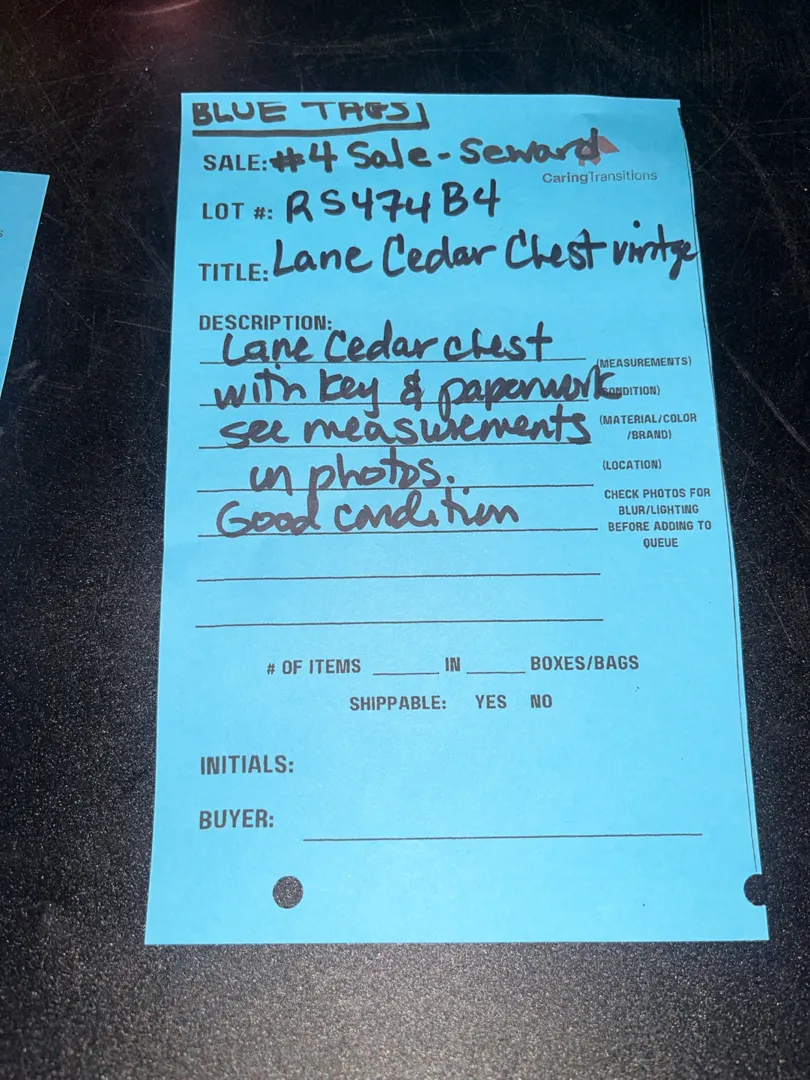 BLUE TAGS
SALE: #4 Sale - Seward
CaringTransitions
LOT #: RS474B4
TITLE: Lane Cedar Chest vintge
DESCRIPTION:
Lane Cedar chest
(MEASUREMENTS)
with key & paperwork
(CONDITION)
see measurements
(MATERIAL/COLOR
/BRAND)
in photos.
(LOCATION)
Good condition
CHECK PHOTOS FOR
BLUR/LIGHTING
BEFORE ADDING TO
QUEUE
# OF ITEMS ______ IN ______ BOXES/BAGS
SHIPPABLE: YES NO
INITIALS:
BUYER: